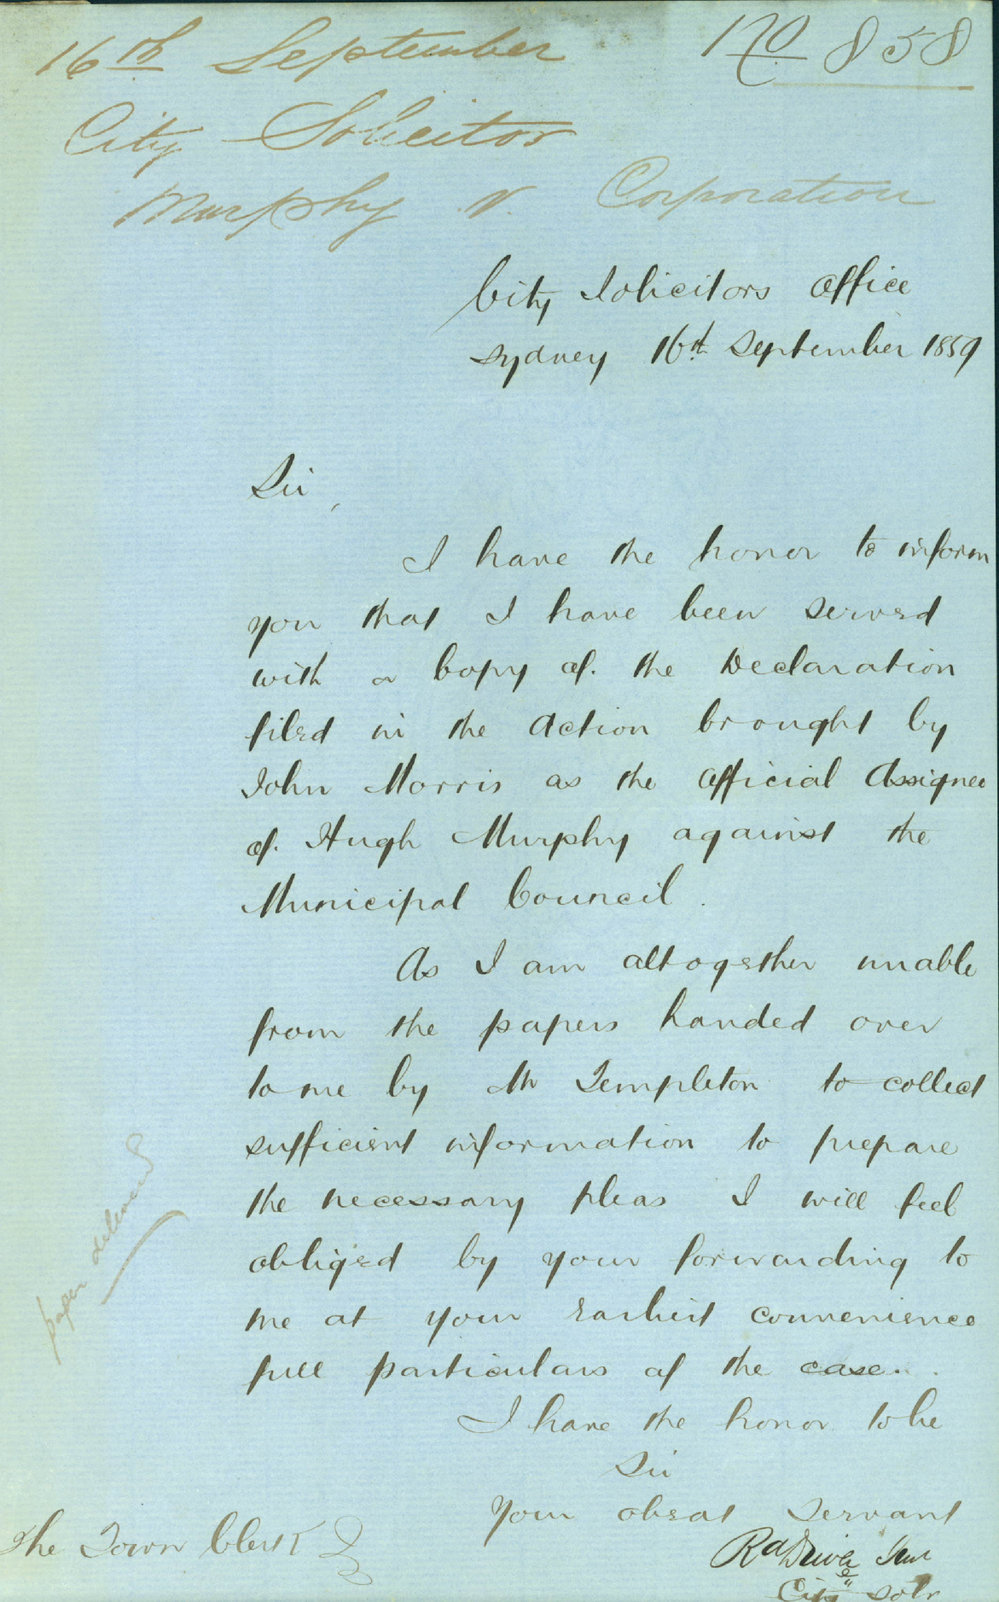 16th September No 858
City Solicitor
Murphy v. Corporation
City Solicitors Office
Sydney 16th September 1859
Sir,
I have the honor to inform
you that I have been served
with a Copy of the Declaration
filed in the Action brought by
John Morris as the Official Assignee
of Hugh Murphy against the
Municipal Council.
As I am altogether unable
from the papers handed over
to me by Mr Templeton to collect
sufficient information to prepare
the necessary pleas I will feel
obliged by your forwarding to
me at your earliest convenience
full particulars of the case.
I have the honor to be
Sir
Your obedt Servant
Rd Driver Junr
City Solr
The Town Clerk
paper delivered